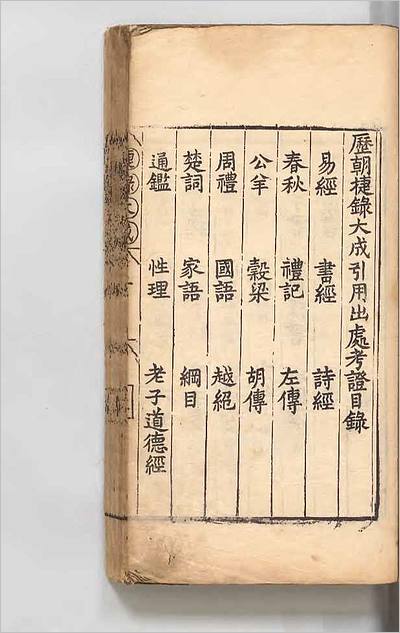 歷朝捷錄大成引用出處考證目錄
易經 書經 詩經
春秋 禮記 左傳
公羊 穀梁 胡傳
周禮 國語 越絕
楚詞 家語 綱目
通鑑 性理 老子道德經